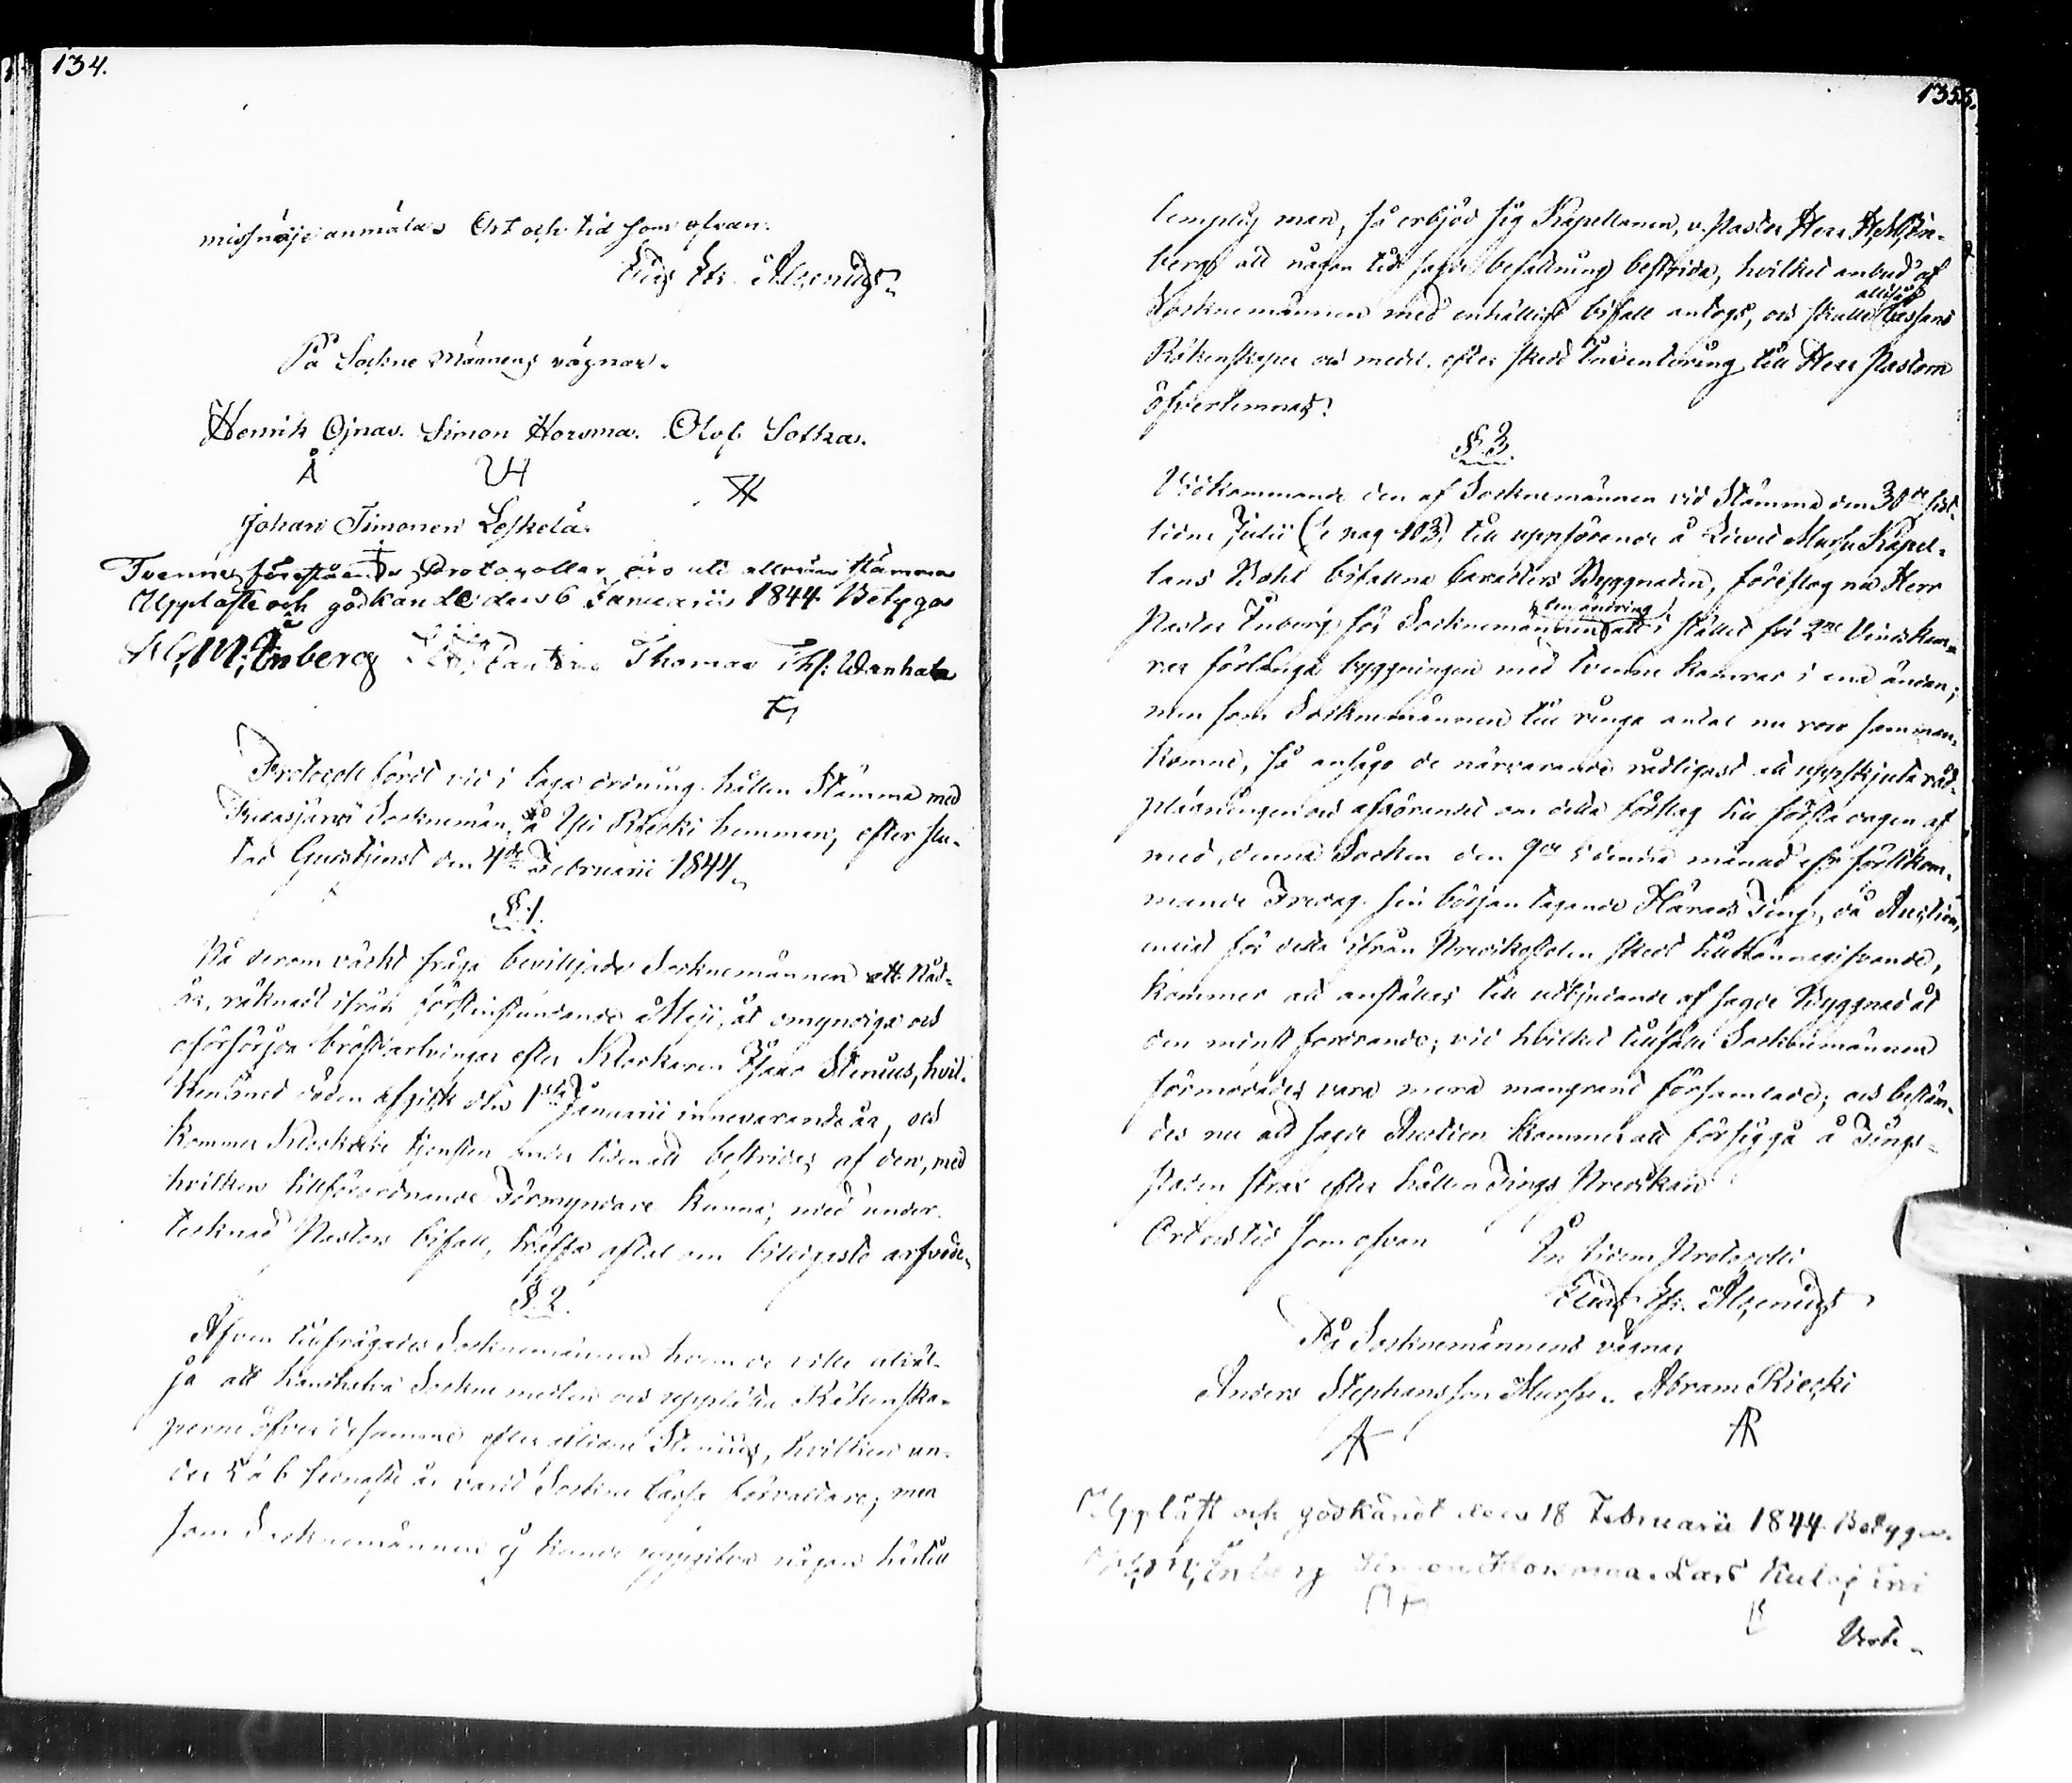 134.
missnöje anmäldes Ort och tid som ofvan.
Elias Alcenius
På Sockne Männens vägnar.
Henrik Ojnas. Simon Horsma. Olof Sotka.
Å
Johan Timonen Leskelä.
Tvenne förestående Protocoller äro uti allmän stämma
Uppläste och godkände den 6 Januarii 1844 Betygar
H. M. Enberg Thomas Thf: Wanhala
Protocoll fördt vid i laga ordning hållen Stämma med
Socknemän, å Ypi Riecki hemman, efter slu-
tad Gudstjenst den 4de Februarii 1844.
§.1.
På derom väckt fråga beviljade Socknemännen ett Nåd-
år, räknadt ifrån förstinstundande Maji, åt omyndiga och
oförsörjda bröstarfvingar efter Klockaren Isaac Stenius, hvil-
ken med döden afgick den 1sta Januarii innevarande år, och
kommer Klockare tjensten under tiden att bestridas af den, med
hvilken tillförordnande Förmyndare kunna, med under-
tecknad Pastors bifall, träffa aftal om billigaste arfvode.
§.2.
Äfven tillfrågades Socknemännen hvem de ville utväl-
ja att handhafva Sockne medlen och upprätta Räkenska-
perne öfver desamma efter aflidne Stenius, hvilken un-
der 5 à 6 sednaste år varit Sockne Cassa förvaltare; men
som Socknemännen ej kunde uppgifva någon härtill
135.
lemplig man, så erbjöd sig Kapellanen, v. Pastor Herr H. M. En-
berg att någon tid sagde befattning bestrida, hvilket anbud af
Socknemännen med enhälligt bifall antogs, och skulle alltså Cassans
Räkenskaper och medel efter skedd Inventering till Herr Pastorn
öfverlemnas.
§.3.
Vidkommande den af Socknemännen vid Stämma den 30de sist-
lidne Julii (se pag 103) till uppförande å Lievid Mursu Kapel-
lans Bohl bifallna Caracters Byggnaden, föreslog nu Herr
Pastor Enberg för Socknemännen den ändring att i stället för 2ne Vindskam-
rar förlänga byggningen med tvenne kamrar i ena ändan;
men som Socknemännen till ringa antal nu voro samman-
komne, så ansågo de närvarande rådligast att uppskjuta råd-
plägningen och afgörandet om detta förslag till första dagen af
med denna Socken den 9de i denna månad eller förstkom-
mande Fredag sin början tagande Härads Ting, då Auction,
emot för detta ifrån Predikstolen skedt tillkännagifvande,
kommer att anställas till utbjudande af sagde Byggnad åt
den minst fordrande; vid hvilket tillfälle Socknemännen
förmodades vara mera mangrant församlade; och bestäm-
des nu att sagde Auction kommer att försiggå å Tings-
staden strax efter hållen Tings Predikan
Ort och tid som ofvan
In fidem Protocolli
Elias Alcenius
På Socknemännens vägnar
Anders Stephansson Mursu. Abram Riecki
Uppläst och godkändt den 18 Februarii 1844 Betygar.
H. M. Enberg Simon Horsma. Lars Kulojärvi
Vert.